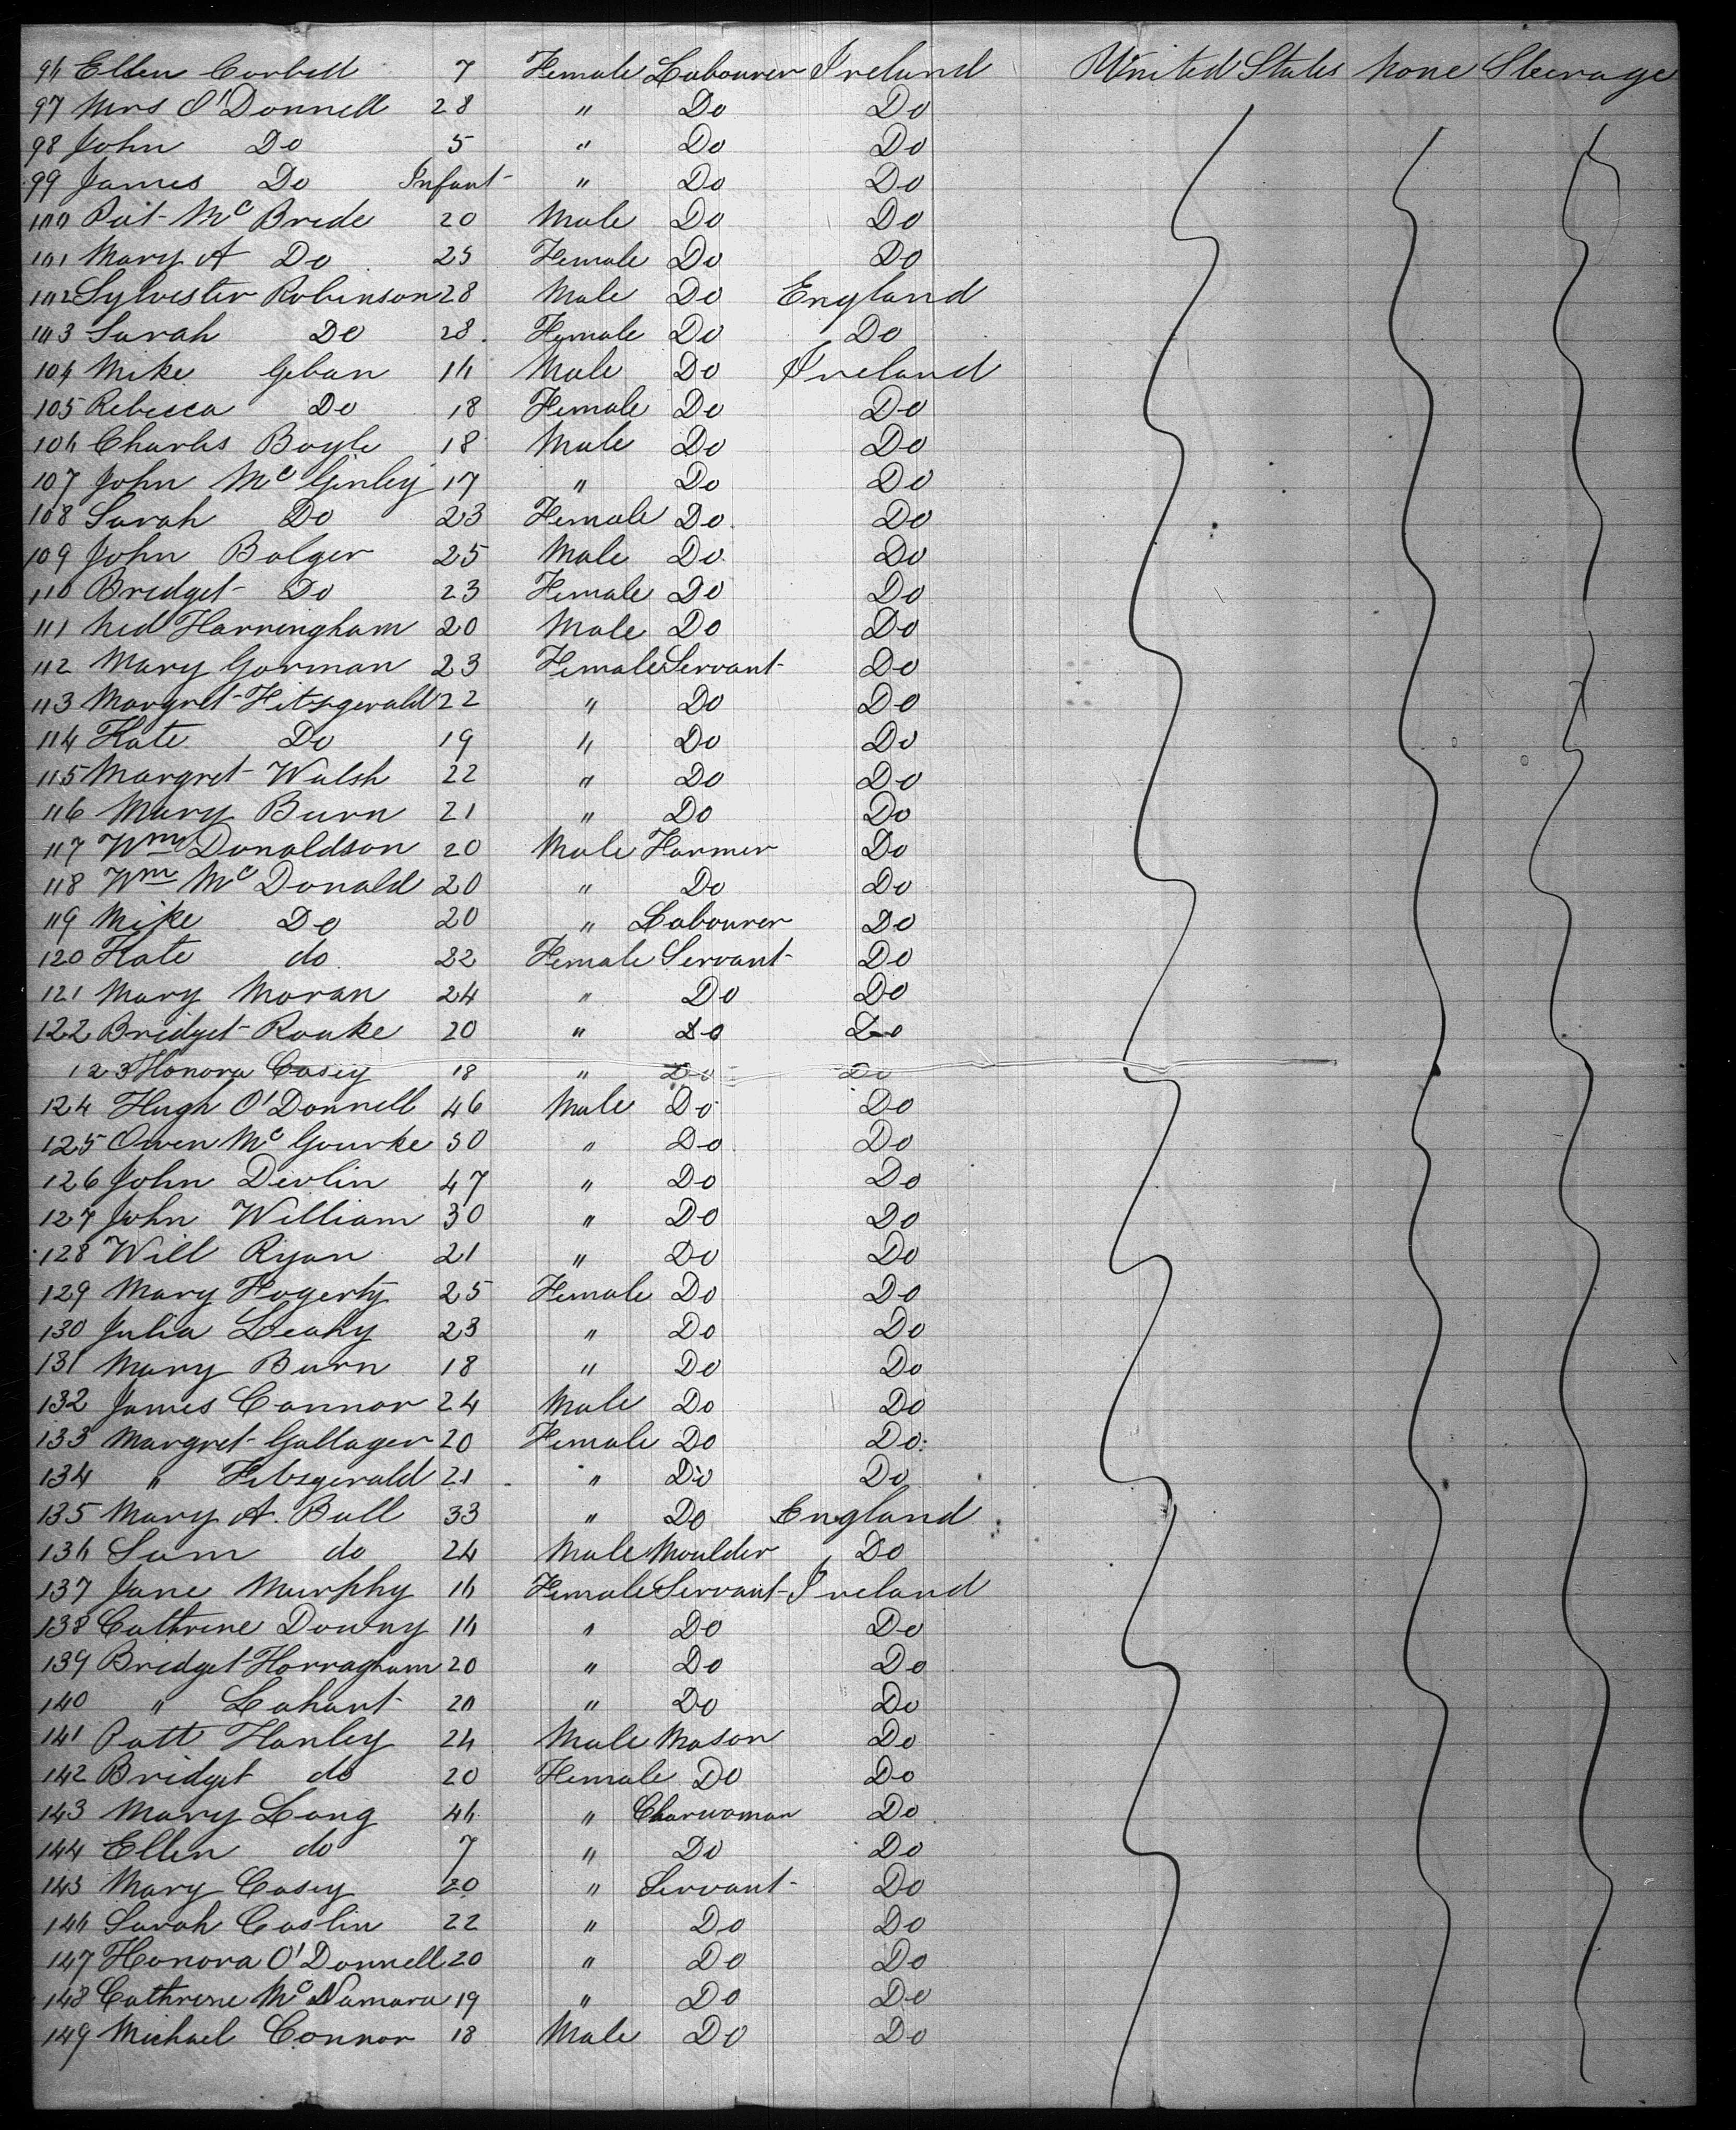 96 Ellen Corbett 7 Female Labourer Ireland United States None Steerage
97 Mrs O'Donnell 28 " Do Do
98 John Do 5 " Do Do
99 James Do Infant " Do Do
100 Pat McBride 20 Male Do Do
101 Mary A Do 25 Female Do Do
102 Sylvester Robinson 28 Male Do England
103 Sarah Do 28 Female Do Do
104 Mike Geban 16 Male Do Ireland
105 Rebecca Do 18 Female Do Do
106 Charles Boyle 18 Male Do Do
107 John McGinley 17 " Do Do
108 Sarah Do 23 Female Do Do
109 John Bolger 25 Male Do Do
110 Bridget Do 23 Female Do Do
111 Ned Harringham 20 Male Do Do
112 Mary Gorman 23 Female Servant Do
113 Margret Fitzgerald 22 " Do Do
114 Kate Do 19 " Do Do
115 Margret Walsh 22 " Do Do
116 Mary Burn 21 " Do Do
117 Wm Donaldson 20 Male Farmer Do
118 Wm McDonald 20 " Do Do
119 Mike Do 20 " Labourer Do
120 Kate do 22 Female Servant Do
121 Mary Moran 24 " Do Do
122 Bridget Roake 20 " Do Do
123 Honora Casey 18 " Do Do
124 Hugh O'Donnell 46 Male Do Do
125 Owen McGourke 50 " Do Do
126 John Devlin 47 " Do Do
127 John William 30 " Do Do
128 Will Ryan 21 " Do Do
129 Mary Hogerty 25 Female Do Do
130 Julia Leahy 23 " Do Do
131 Mary Burn 18 " Do Do
132 James Connor 24 Male Do Do
133 Margret Gallager 20 Female Do Do
134 " Fitzgerald 21 " Do Do
135 Mary A. Ball 33 " Do England
136 Sam do 24 Male Moulder Do
137 Jane Murphy 16 Female Servant Ireland
138 Cathrine Downy 16 " Do Do
139 Bridget Horragham 20 " Do Do
140 " Lahart 20 " Do Do
141 Patt Hanley 24 Male Mason Do
142 Bridget do 20 Female Do Do
143 Mary Long 46 " Charwoman Do
144 Ellen do 7 " Do Do
145 Mary Casey 20 " Servant Do
146 Sarah Caslin 22 " Do Do
147 Honora O'Donnell 20 " Do Do
148 Cathrine McNamara 19 " Do Do
149 Michael Connor 18 Male Do Do